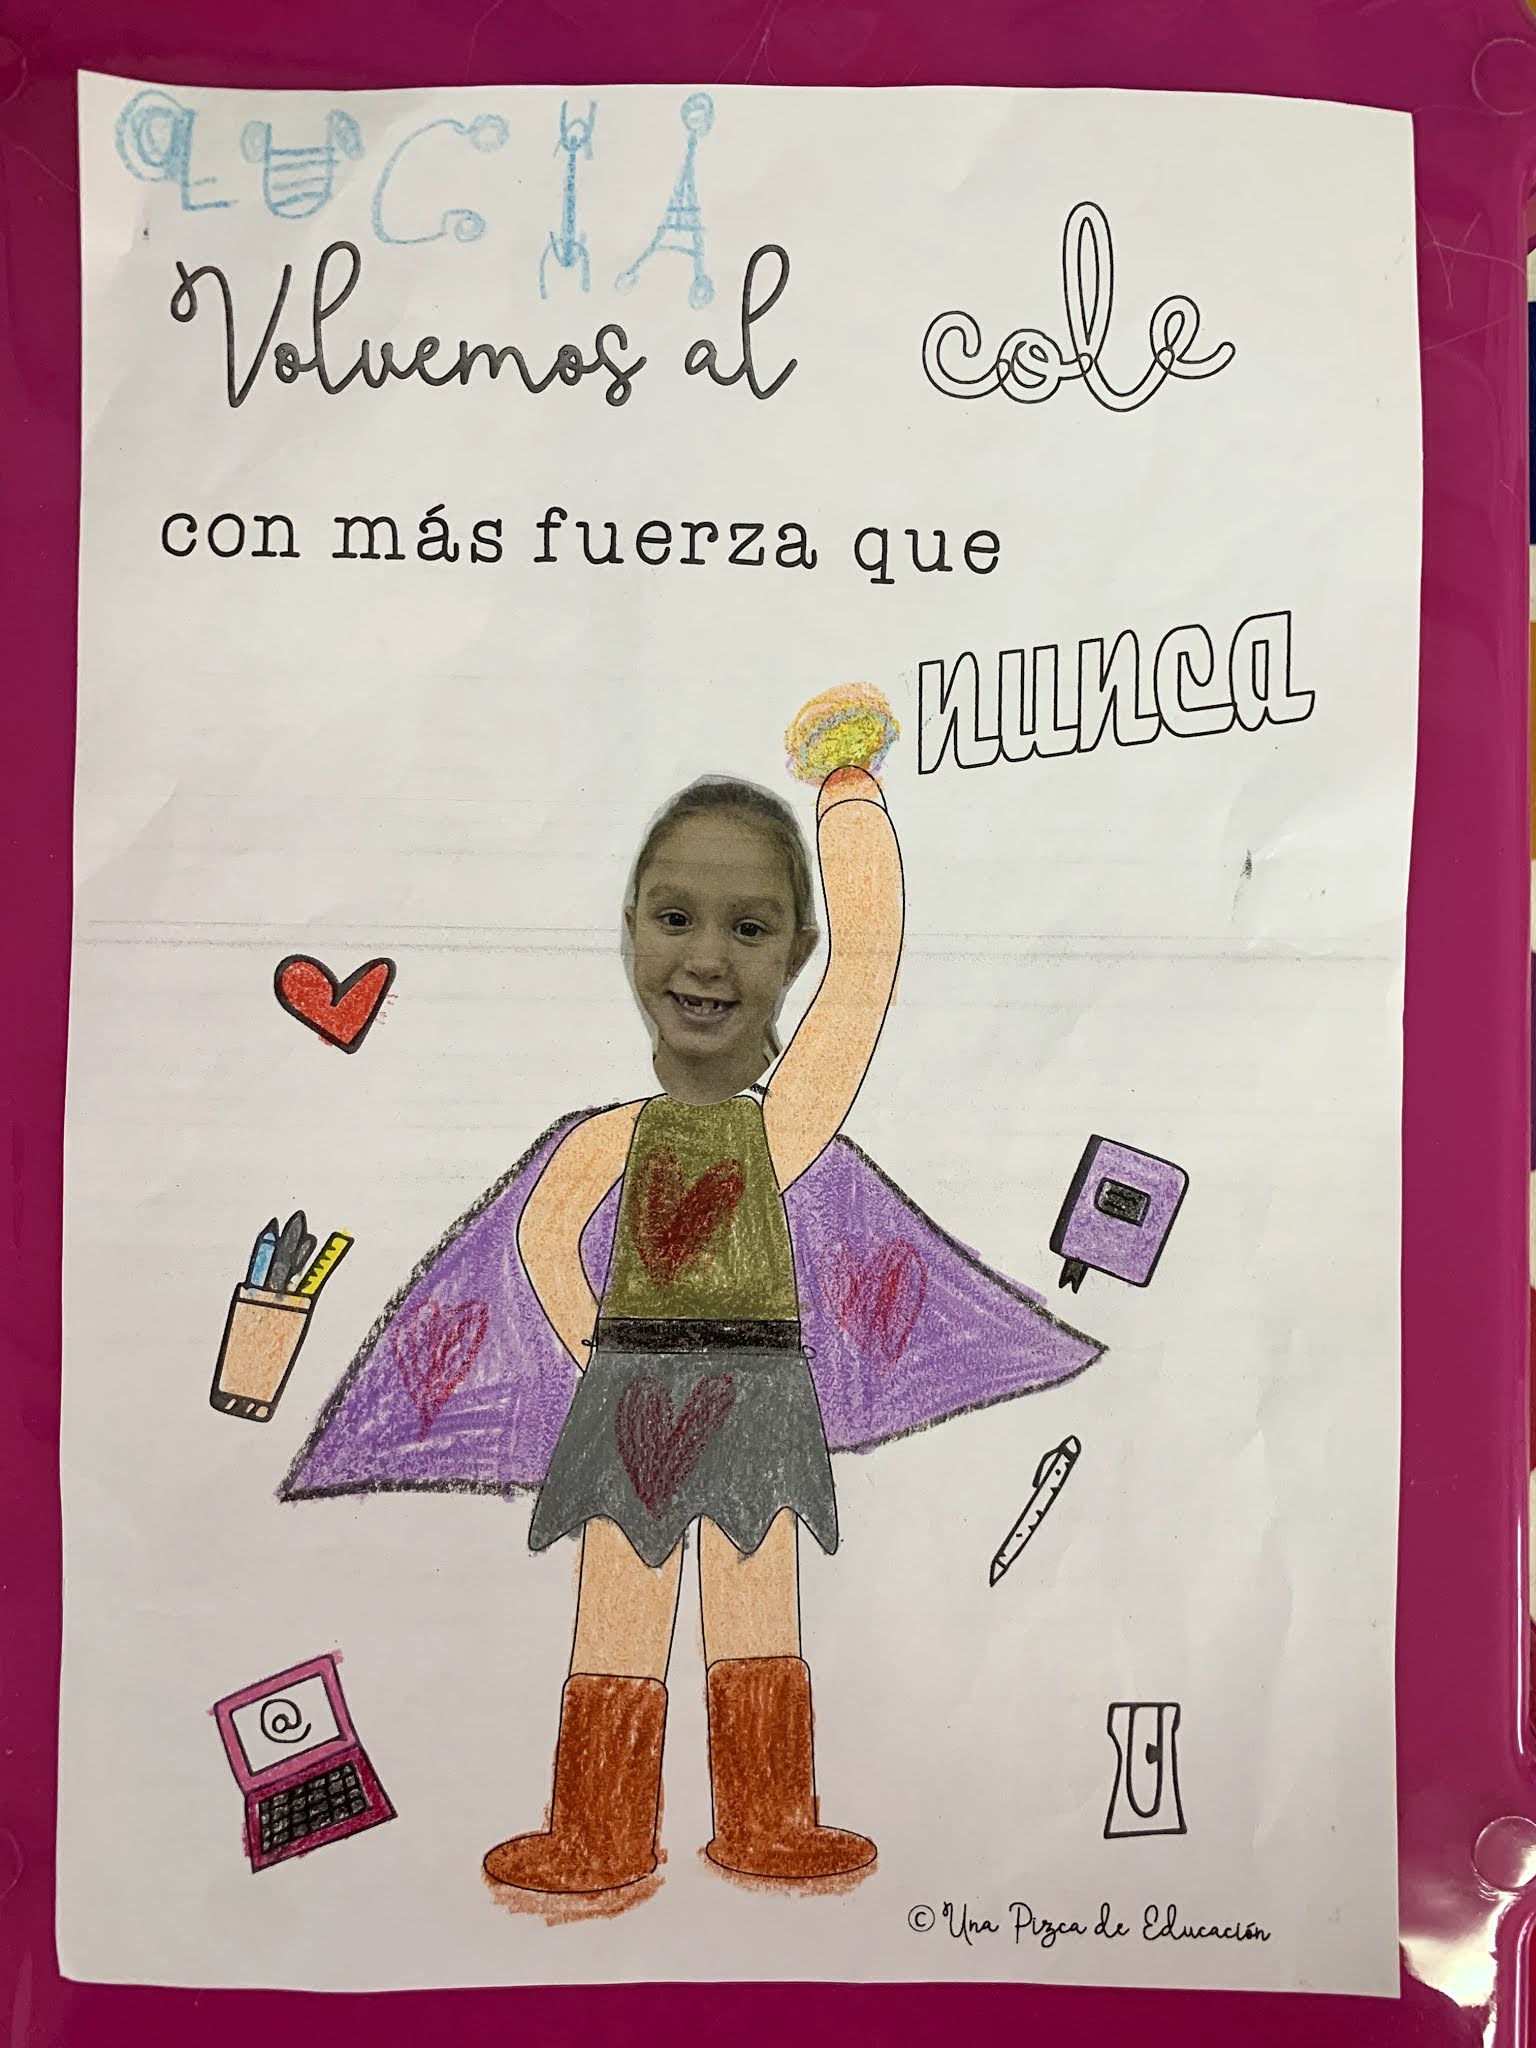 LUCIA
Volvemos al cole
con más fuerza que
nunca
@
© Una Pizca de Educación